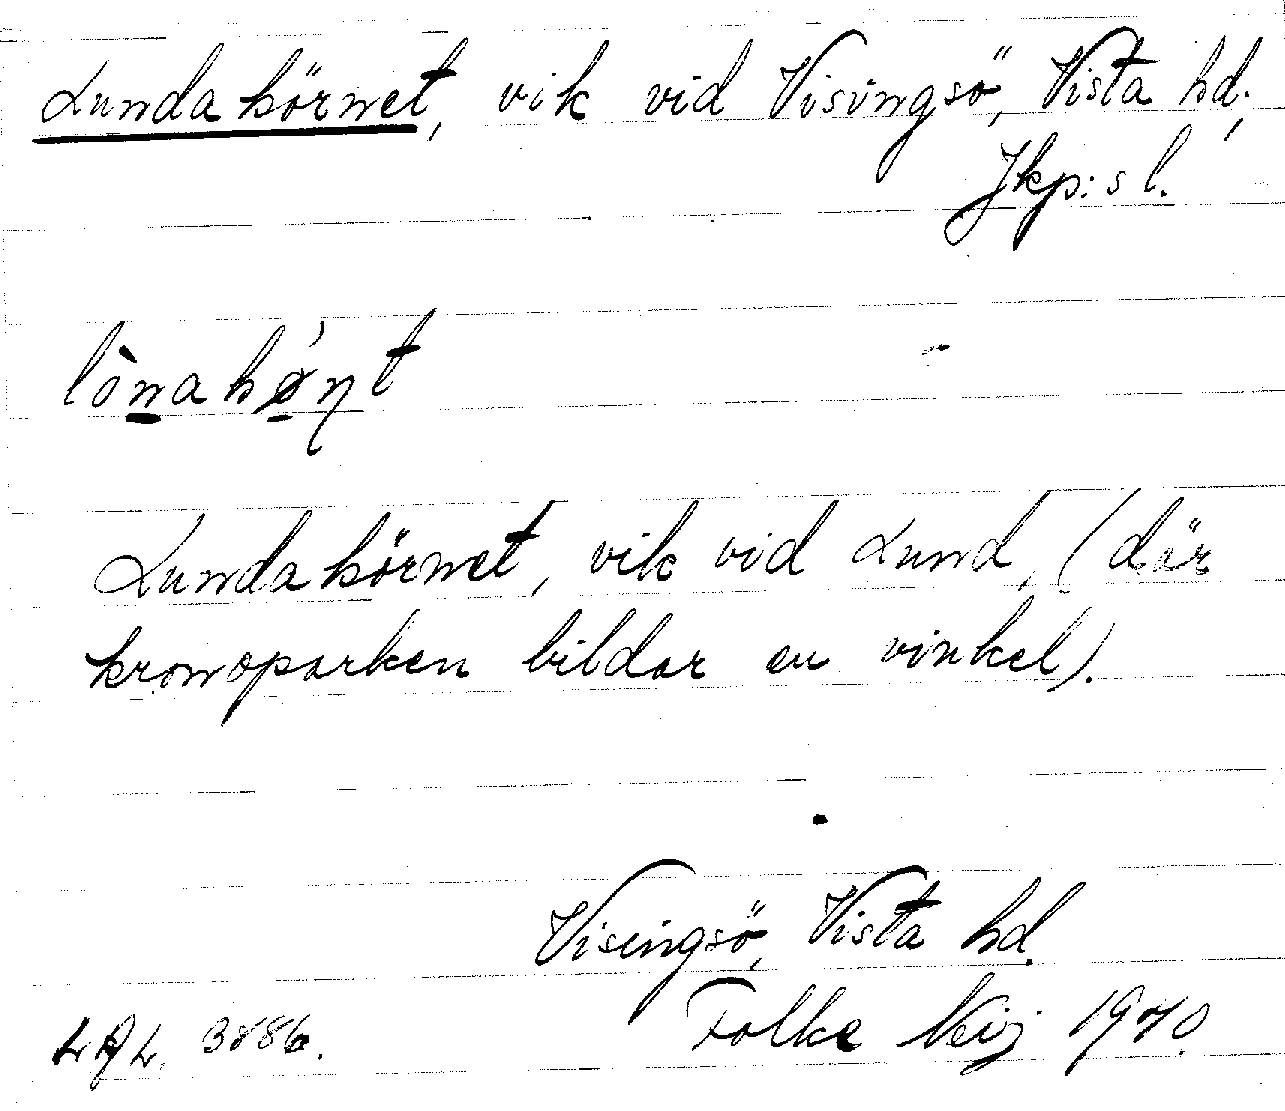 Lundahörnet, vik vid Visingsö, Vista hd,
Jkp:s l.
lònahǿṇt
Lundahörnet, vik vid Lund, (där
kronoparken bildar en vinkel).
Visingsö, Vista hd.
Folke 1940.
3886.